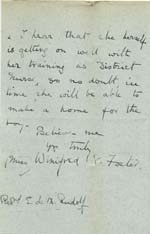 I hear that she herself
is getting on well with
her training as District
Nurse, so no doubt, in
time she will be able to
make a home for the
boy. Believe me
yrs truly
(Miss) Winifred E. Foster.
Revd E. de M. Rudolf